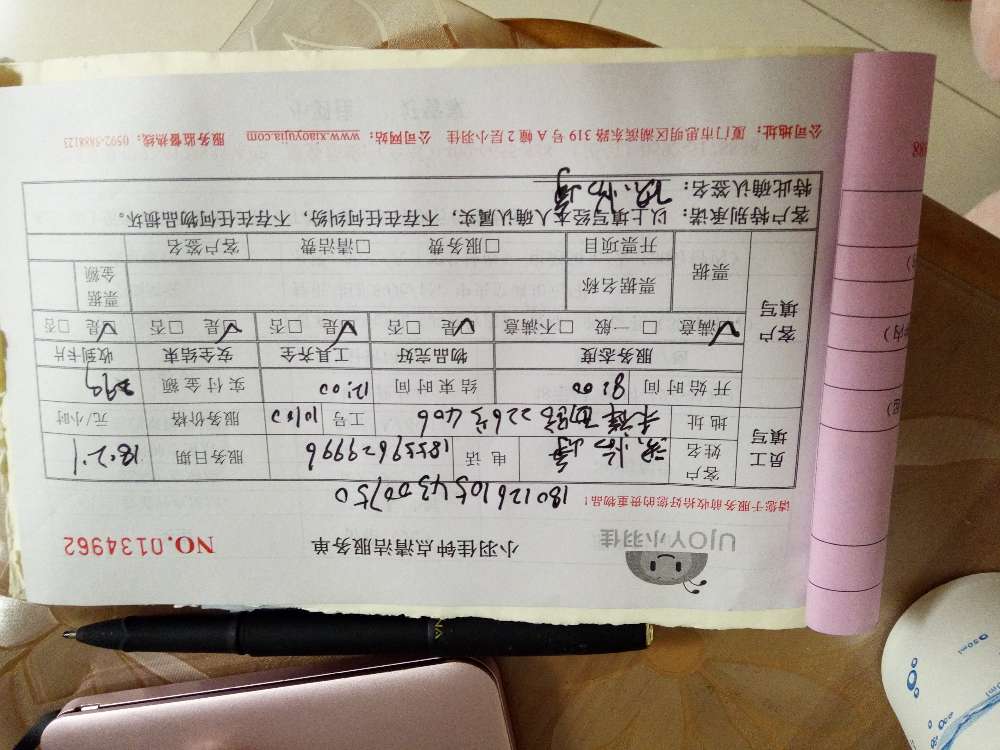 UJOY小羽佳
小羽佳钟点清洁服务单
NO.0134962
请您于服务前收拾好您的贵重物品!
180126105430075０
员工填写
客户姓名
电话 18559629996
服务日期 18.2.1
地址 禾祥西路226号406
工号 10103
服务价格 元/小时
开始时间 9:00
结束时间 12:00
实付金额
客户填写
服务态度 物品完好 工具齐全 安全结束 收到卡片
满意 □ 一般 □不满意 是 □否 是 □否 是 □否 是 □否
票据
票据名称
票据金额
开票项目 □服务费 □清洁费 客户签名
客户特别承诺:以上填写经本人确认属实,不存在任何纠纷,不存在任何物品损坏。
特此确认签名:
公司地址:厦门市思明区湖滨东路319号A幢2层小羽佳 公司网站:www.xiaoyujia.com 服务监督热线:0592-5888123